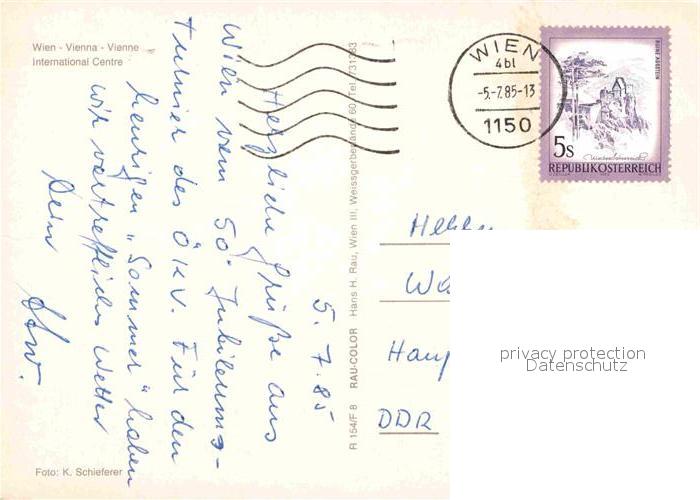 Wien - Vienna - Vienne
International Centre
5. 7. 85
Herzliche Grüße aus
Wien vom 50. Jubiläums-
turnier des ÖKV. Für den
heurigen „Sommer" haben
wir vortreffliches Wetter
Dein
Foto: K. Schieferer
R 154/F 8 RAU-COLOR Hans H. Rau, Wien III, Weissgerberlände 60/Tel. 731283
WIEN
4bl
-5.-7.85-13
1150
RUINE AGGSTEIN
5s
Niederösterreich
REPUBLIK ÖSTERREICH
Herrn
Wa
Haup
DDR
privacy protection
Datenschutz